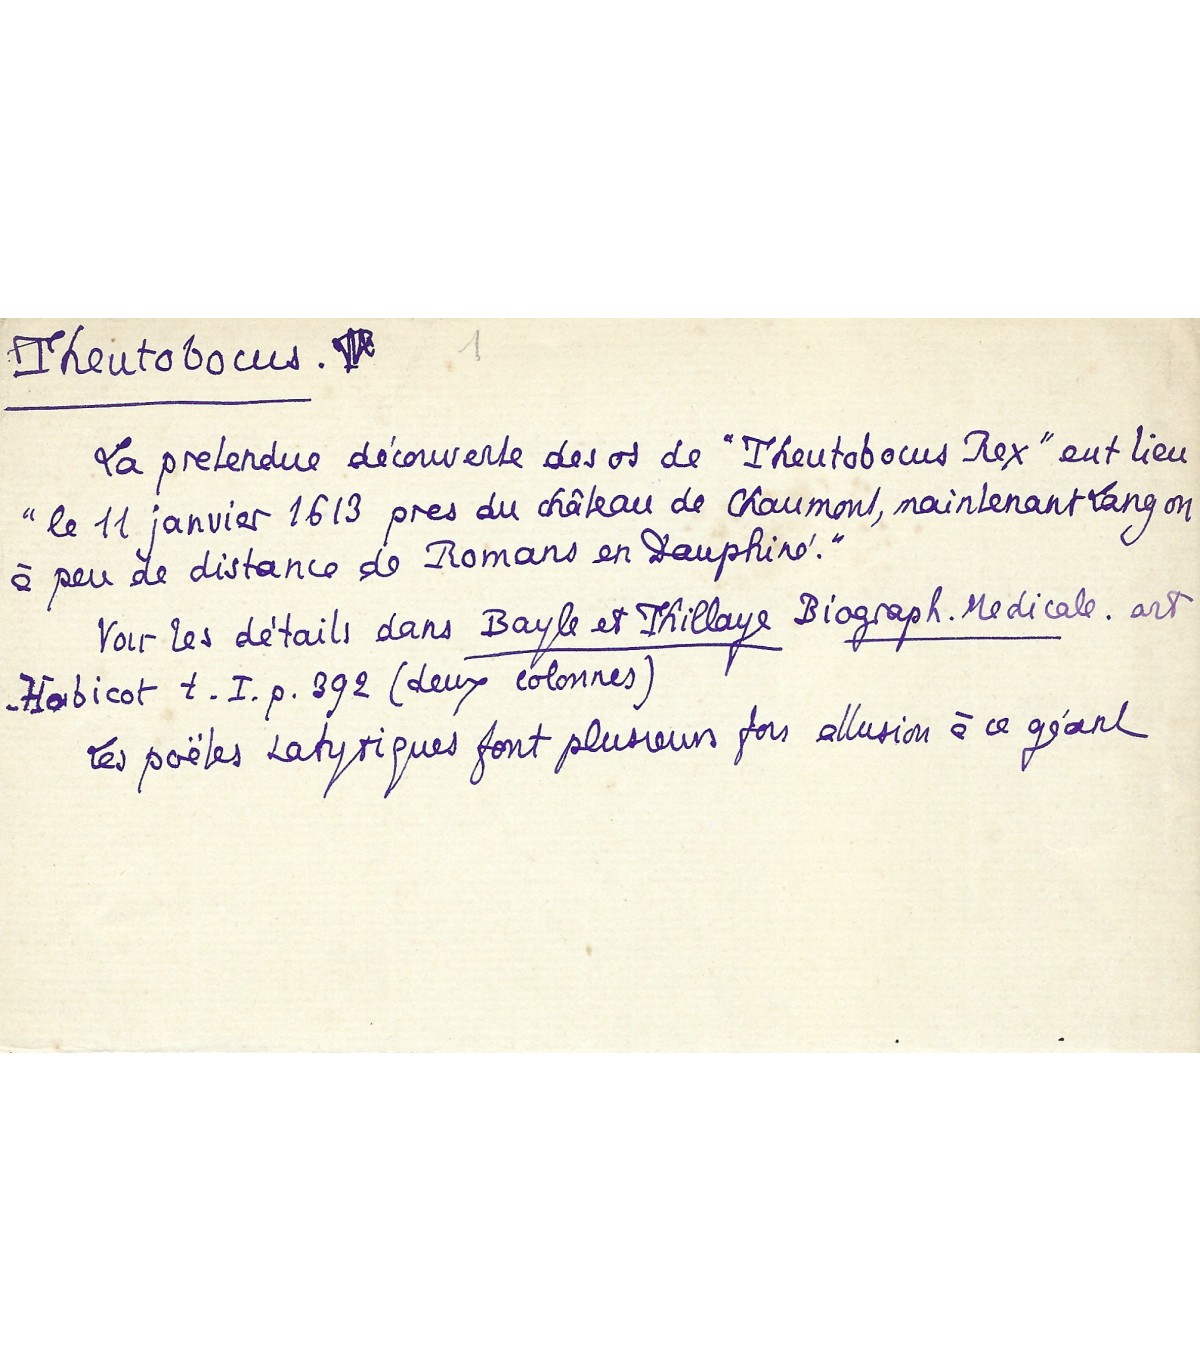 Theutobocus. 1
La pretendue découverte des os de "Theutobocus Rex" eut lieu
"le 11 janvier 1613 pres du château de Chaumont, maintenant Langon
à peu de distance de Romans en Dauphiné."
Voir les détails dans Bayle et Thillaye Biograph. Medicale. art
Habicot t. I. p. 392 (deux colonnes)
Les poëtes satyriques font plusieurs fois allusion à ce géant